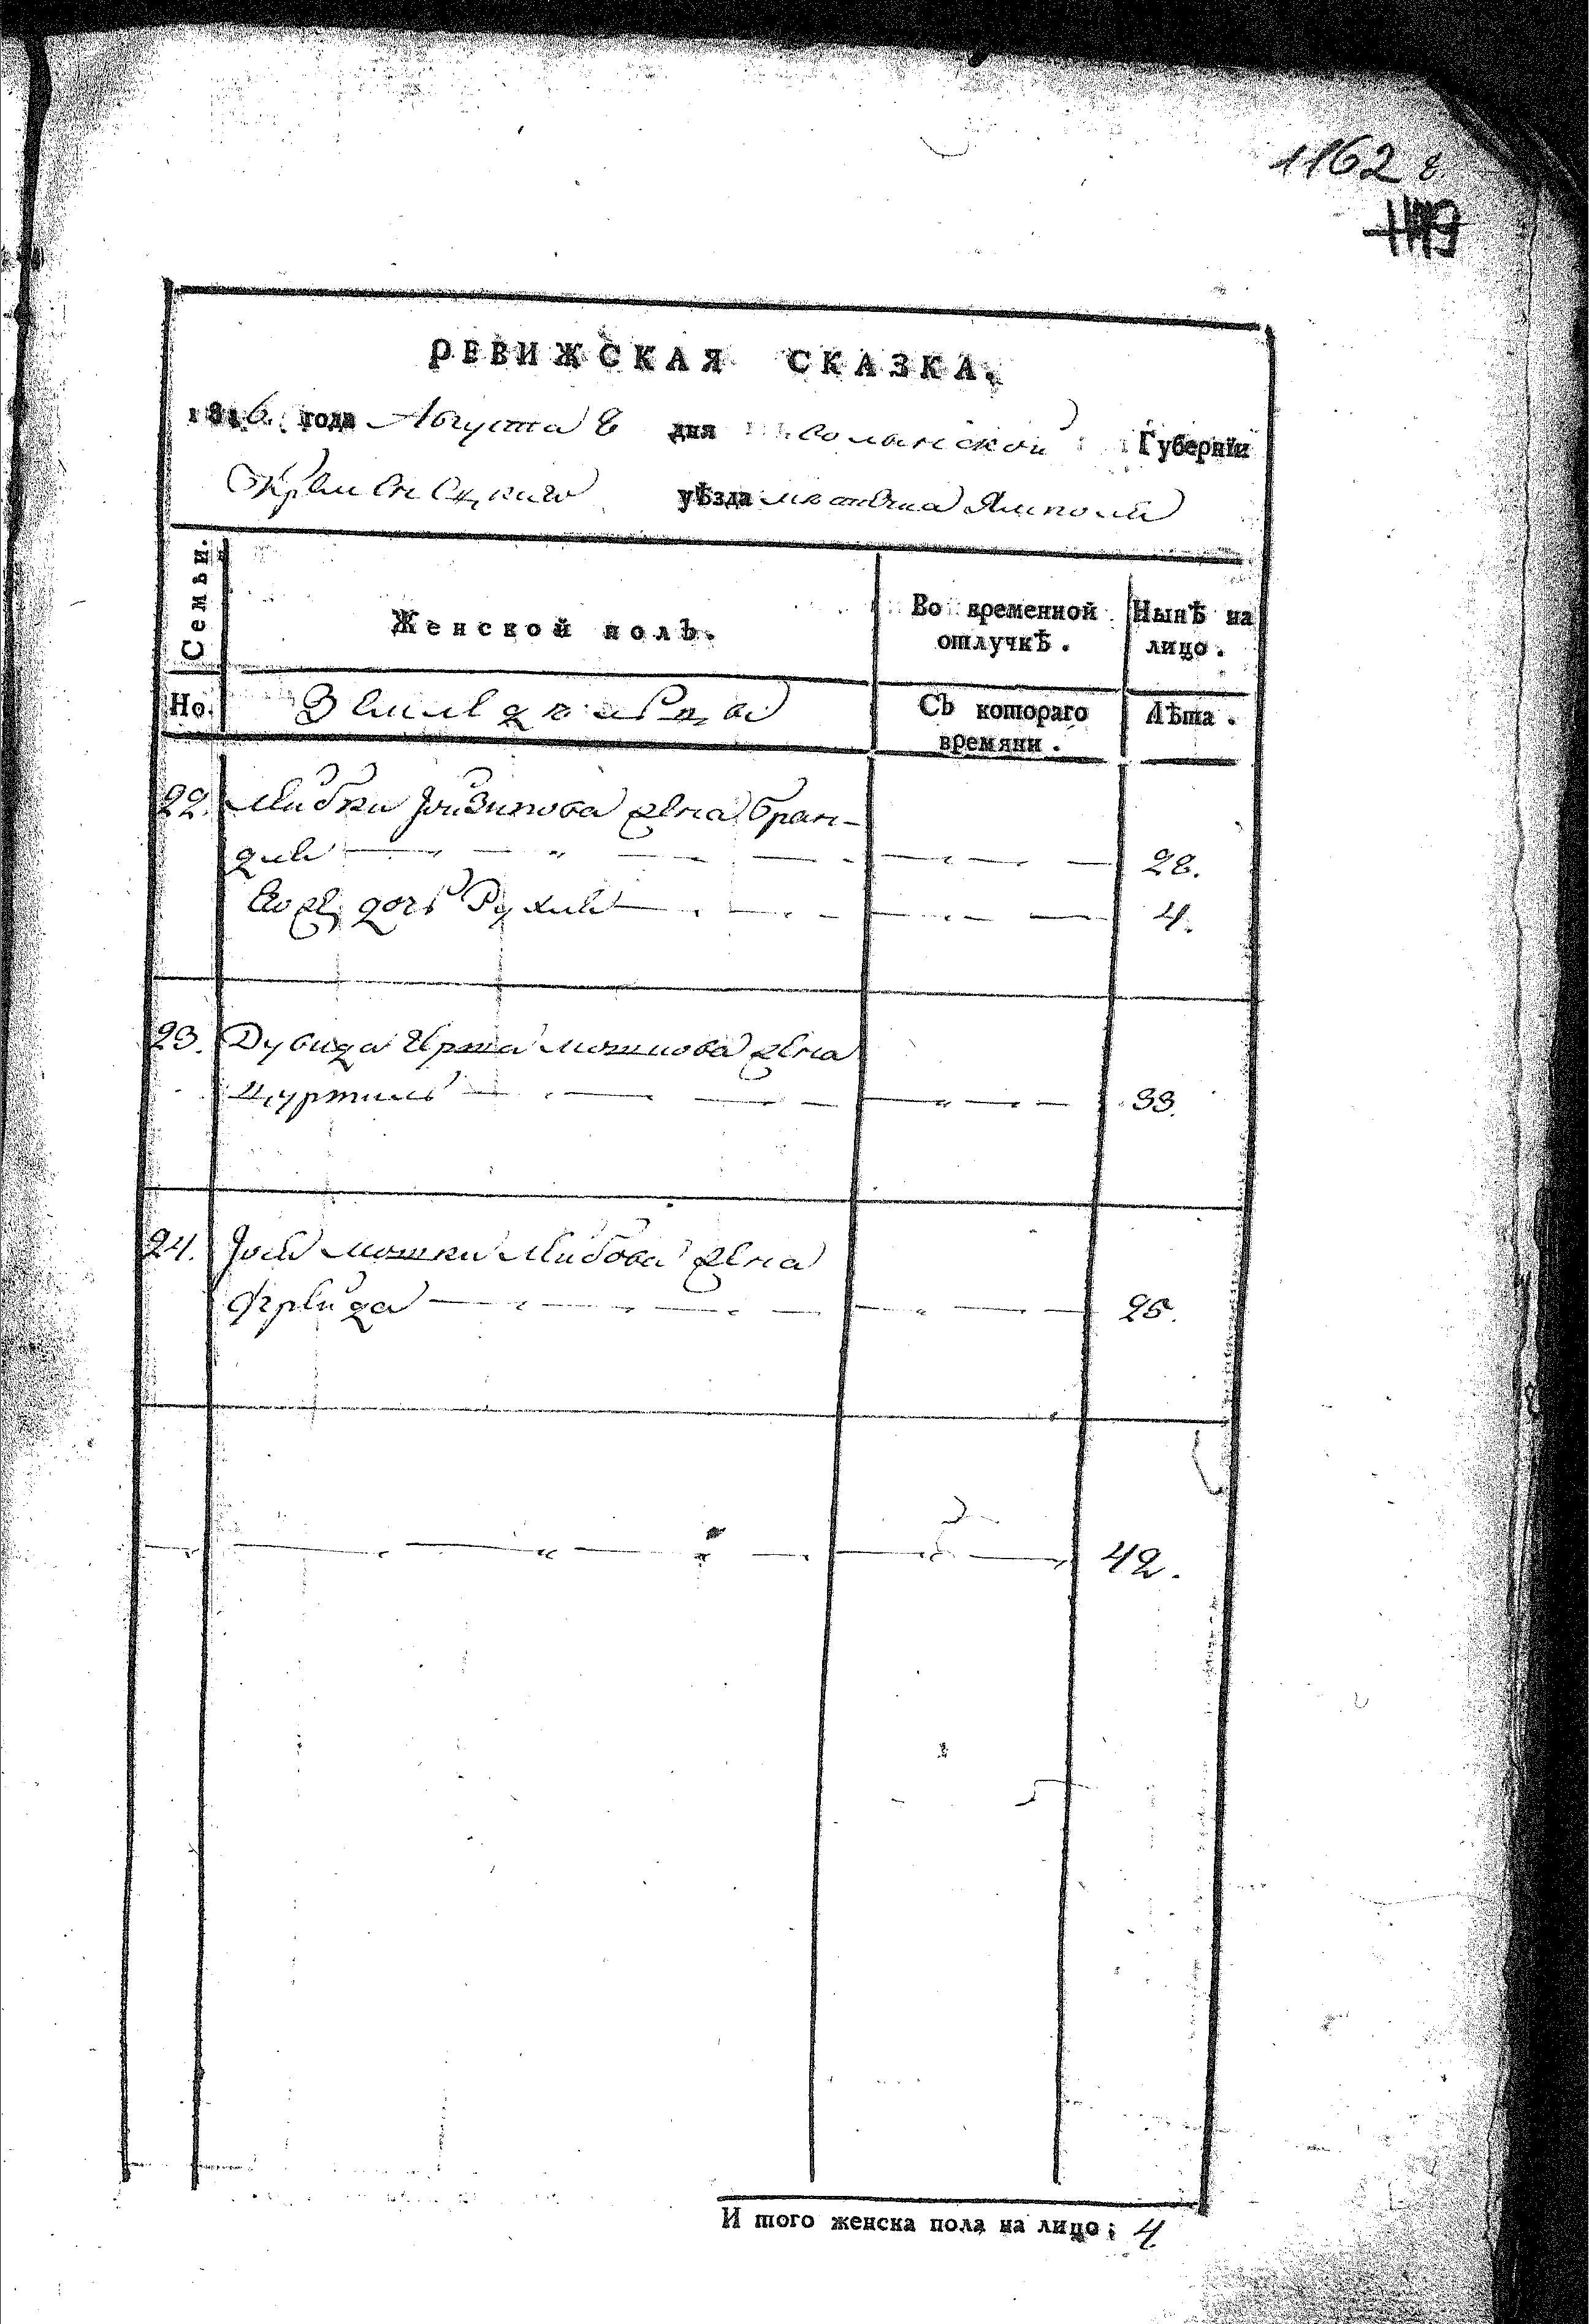 1162
РЕВИЖСКАЯ СКАЗКА.
1816 года Августа 8 дня Волынской Губернїи
Кременецкого уѣзда местечка Ямполя
Семьи.
Женской полъ.
Во временной отлучкѣ.
Нынѣ на лицо.
Но.
Земледельцы
Съ котораго времяни.
Лѣта.
22. Лейбки жена Бран-
для 28.
Его дочь Рухля 4.
23. Дувида Герша Мошкова жена
Цуртель 33.
24. Мошки Лейбова жена
Фрейда 25.
42.
И того женска пола на лицо: 4